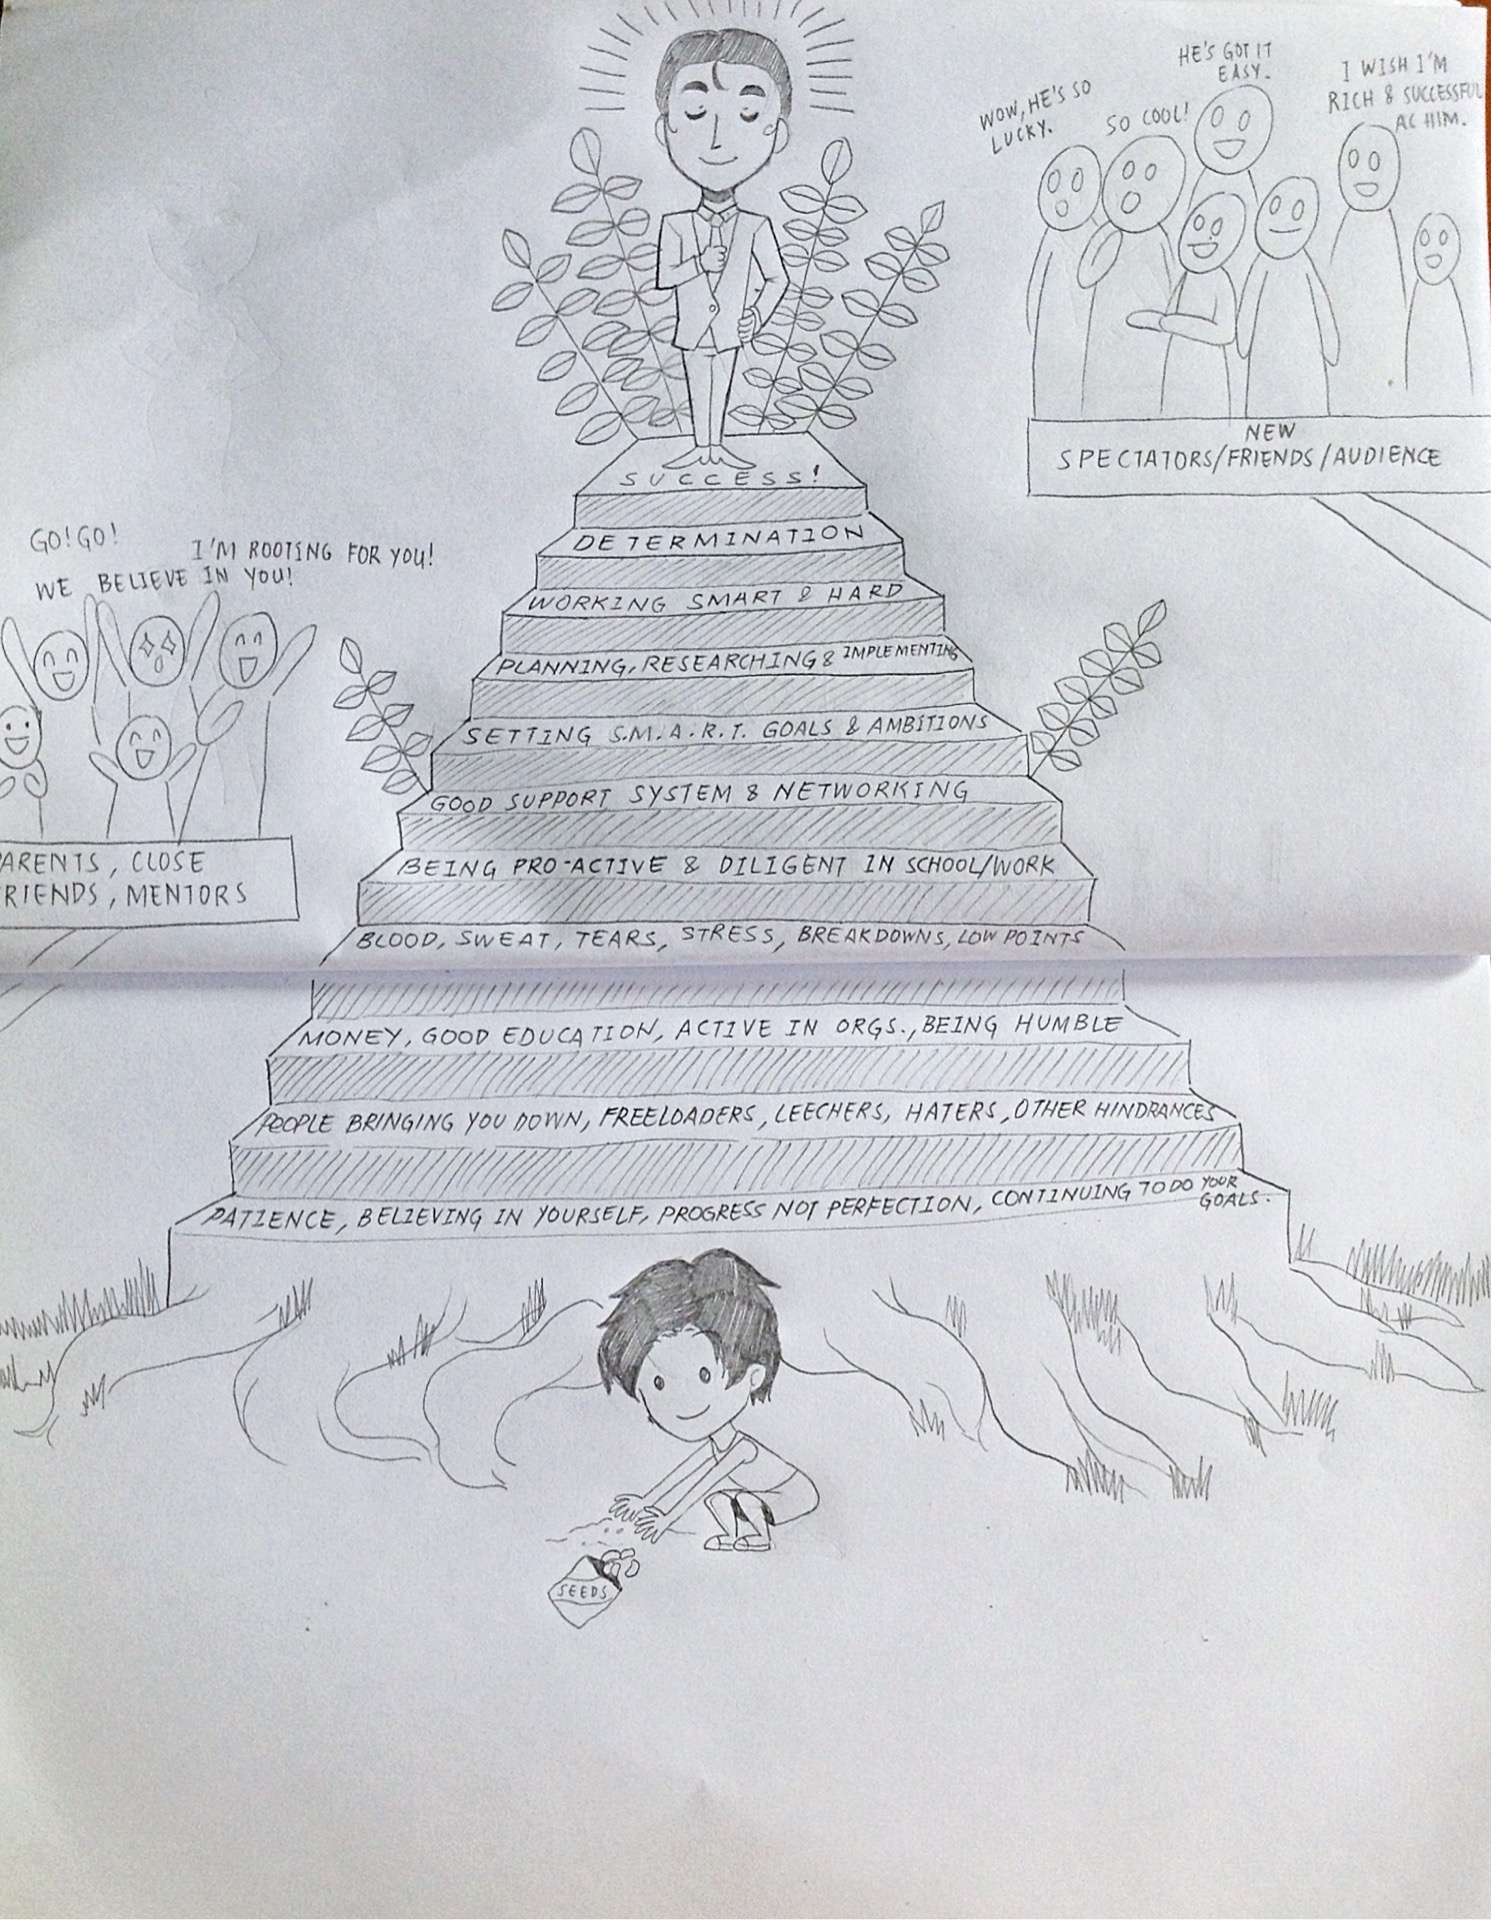 WOW, HE'S SO
LUCKY.
SO COOL!
HE'S GOT IT
EASY.
I WISH I'M
RICH & SUCCESSFUL
AS HIM.
NEW
SPECTATORS/FRIENDS/AUDIENCE
GO! GO!
I'M ROOTING FOR YOU!
WE BELIEVE IN YOU!
ARENTS, CLOSE
RIENDS, MENTORS
SUCCESS!
DETERMINATION
WORKING SMART & HARD
PLANNING, RESEARCHING & IMPLEMENTING
SETTING S.M.A.R.T. GOALS & AMBITIONS
GOOD SUPPORT SYSTEM & NETWORKING
BEING PRO-ACTIVE & DILIGENT IN SCHOOL/WORK
BLOOD, SWEAT, TEARS, STRESS, BREAKDOWNS, LOW POINTS
MONEY, GOOD EDUCATION, ACTIVE IN ORGS., BEING HUMBLE
PEOPLE BRINGING YOU DOWN, FREELOADERS, LEECHERS, HATERS, OTHER HINDRANCES
PATIENCE, BELIEVING IN YOURSELF, PROGRESS NOT PERFECTION, CONTINUING TO DO YOUR
GOALS.
SEEDS